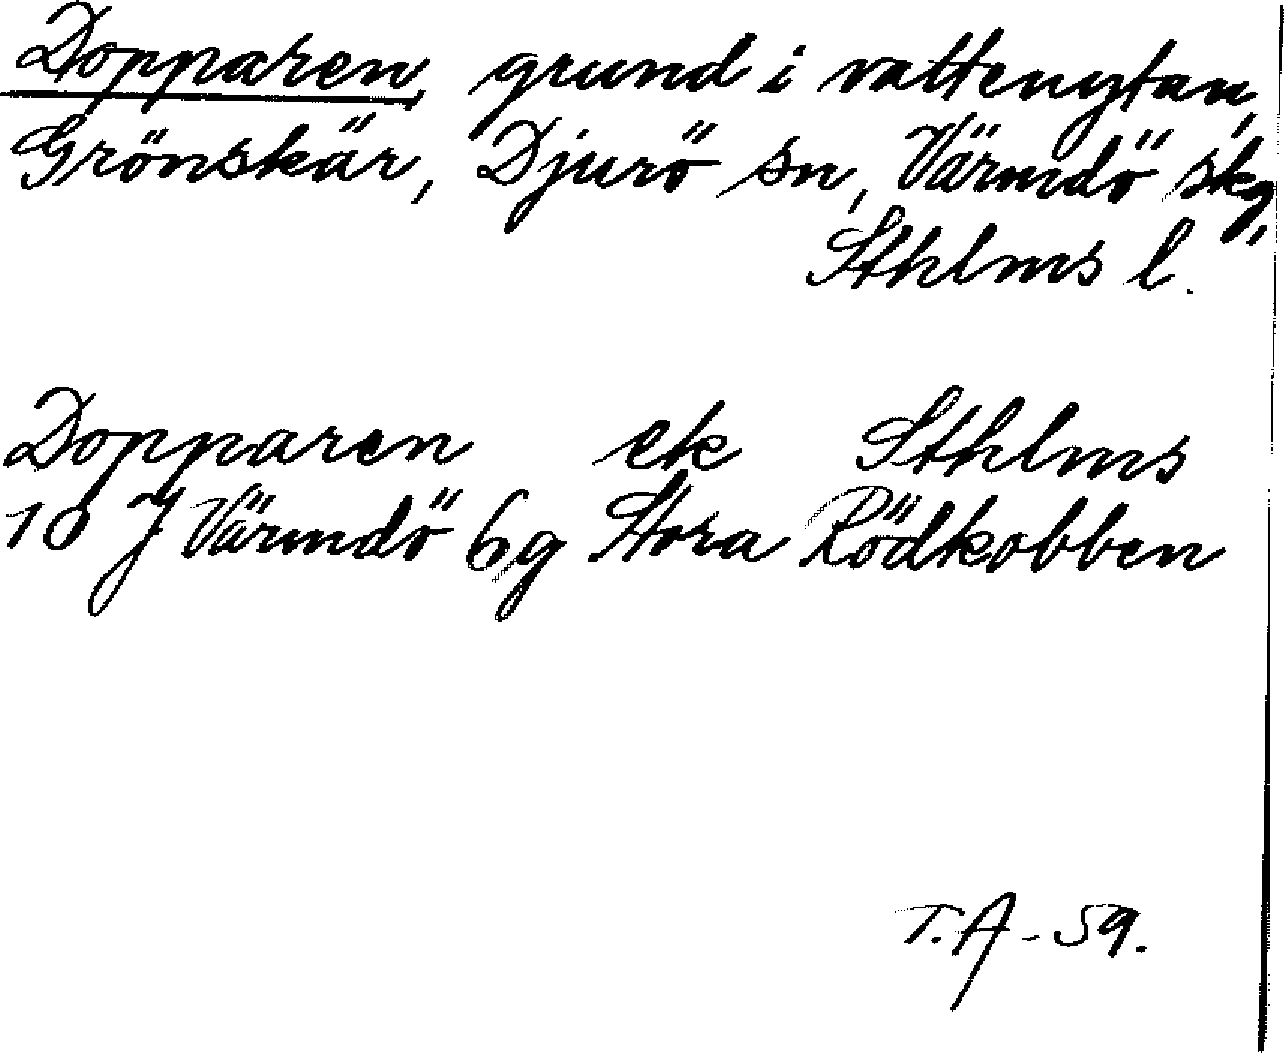 Dopparen, grund i vattenytan,
Grönskär, Djurö sn, Värmdö skg,
Sthlms l.
Dopparen ek Sthlms
10 J Värmdö 6g Stora Rödkobben
T.A - 59.